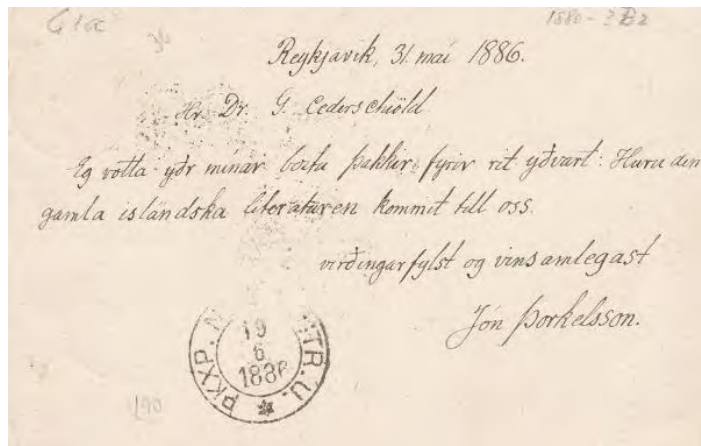 Reykjavík, 31. maí 1886.
Hr. Dr. G. Cederschiöld
Eg votta yðr mínar beztu þakkir fyrir rit yðvart: Huru den
gamla isländska literaturen kommit till oss.
virðingarfylst og vinsamlegast
Jón Þorkelsson.
PKXP. N TR. U.
19
6
1886